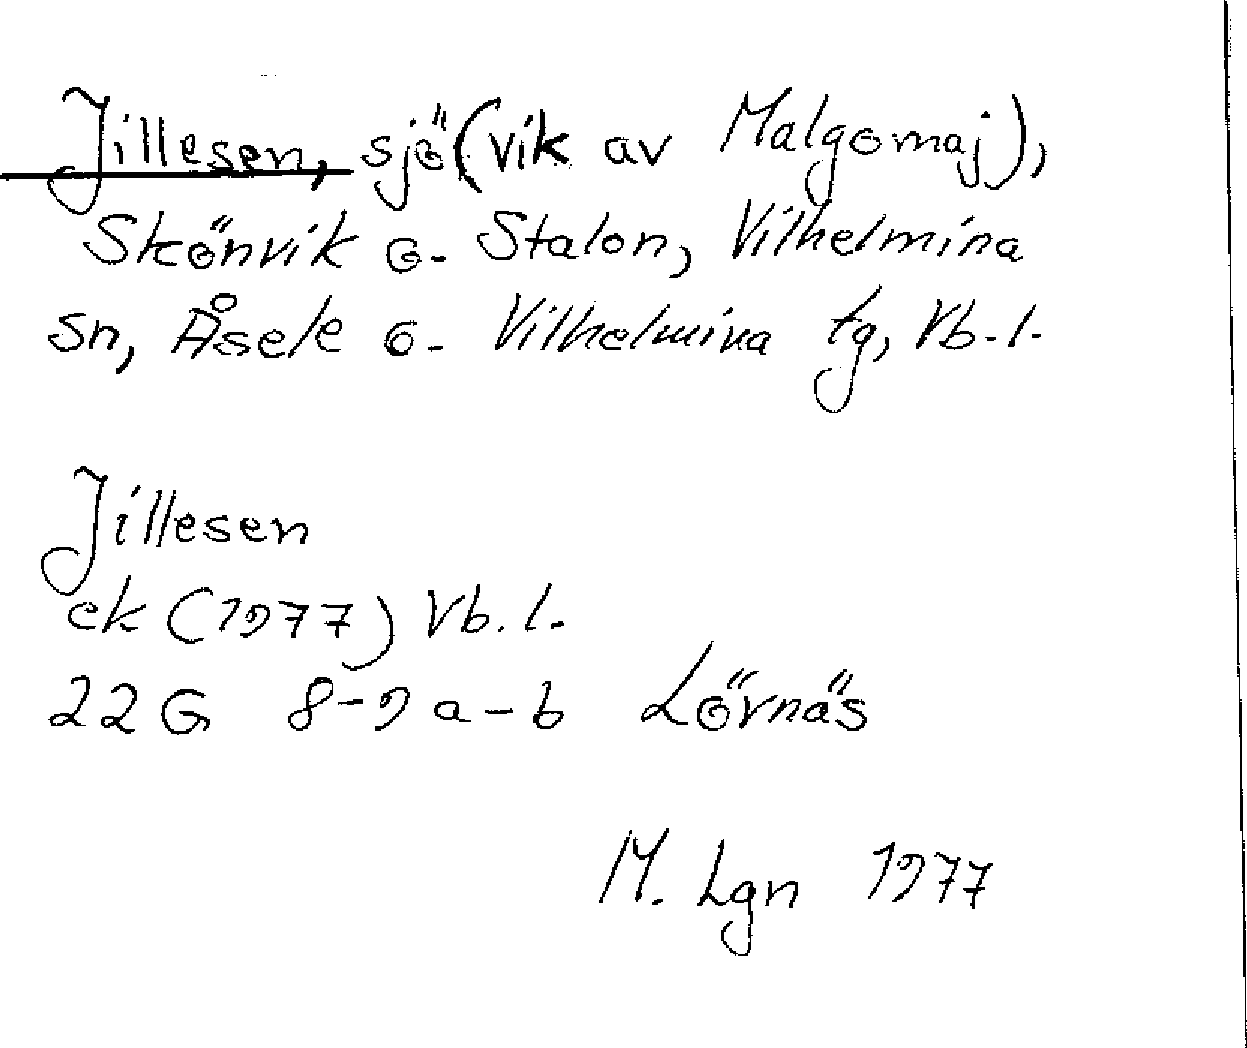 Jillesen, sjö (vik av Malgomaj),
Skönvik o. Stalon, Vilhelmina
sn, Åsele o. Vilhelmina tg, Vb. l.
Jillesen
ek (1977) Vb. l.
22 G 8-9 a-b Lövnäs
M. Lgn 1977